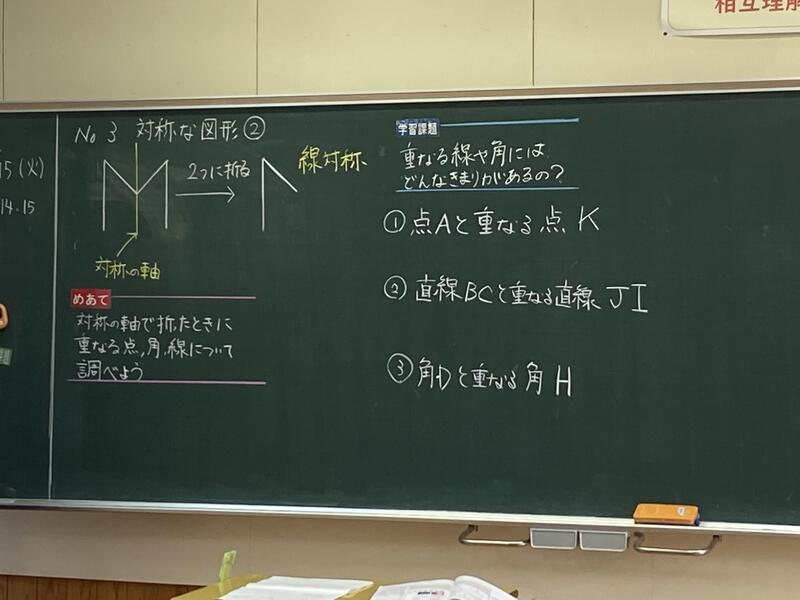 相互理解
15(火)
14.15
No 3 対称な図形②
2つに折る
線対称
対称の軸
めあて
対称の軸で折ったときに
重なる点,角,線について
調べよう
学習課題
重なる線や角には
どんなきまりがあるの?
①点Aと重なる点 K
②直線BCと重なる直線 JI
③角Dと重なる角 H